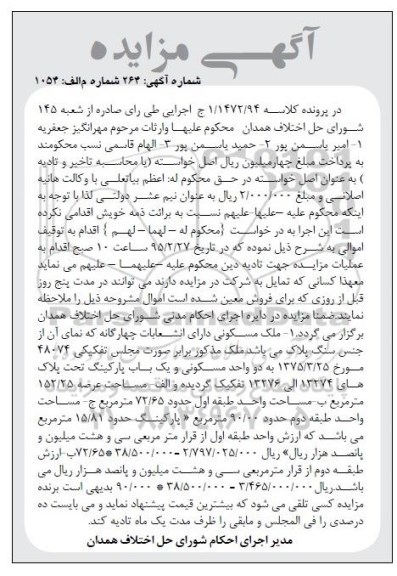 آگهی مزایده
شماره آگهی: ۲۶۴ شماره م‌الف: ۱۰۵۴
در پرونده کلاسه ۱/۱۴۷۲/۹۴ ج اجرایی طی رای صادره از شعبه ۱۴۵
شورای حل اختلاف همدان محکوم علیها وارثات مرحوم مهرانگیز جعفریه
۱- امیر یاسمن پور ۲- حمید یاسمن پور ۳- الهام قاسمی نسب محکومند
به پرداخت مبلغ چهارمیلیون ریال اصل خواسته (با محاسبه تاخیر و تادیه
) به عنوان اصل خواسته در حق محکوم له: اعظم بیاتعلی با وکالت هانیه
اصلانی و مبلغ ۲/۰۰۰/۰۰۰ ریال به عنوان نیم عشر دولتی لذا با توجه به
اینکه محکوم علیه –علیها-علیهم نسبت به برائت ذمه خویش اقدامی نکرده
است این اجرا به در خواست {محکوم له – لهما – لهم } اقدام به توقیف
اموالی به شرح ذیل نموده که در تاریخ ۹۵/۲/۲۷ ساعت ۱۰ صبح اقدام به
عملیات مزایده جهت تادیه دین محکوم علیه –علیهما – علیهم می نماید
معهذا کسانی که تمایل به شرکت در مزایده دارند می توانند در مدت پنج روز
قبل از روزی که برای فروش معین شده است اموال مشروحه ذیل را ملاحظه
نمایند.ضمنا مزایده در دایره اجرای احکام مدنی شورای حل اختلاف همدان
برگزار می گردد.۱- ملک مسکونی دارای انشعابات چهارگانه که نمای آن از
جنس سنگ پلاک می باشد ملک مذکور برابر صورت مجلس تفکیکی ۴۸۰۷۴
مورخ ۱۳۷۵/۳/۲۵ به دو واحد مسکونی و یک باب پارکینگ تحت پلاک
های ۱۳۲۷۴ الی ۱۳۲۷۶ تفکیک گردیده و الف- مساحت عرصه ۱۵۲/۲۵
مترمربع ب-مساحت واحد طبقه اول حدود ۷۲/۶۵ مترمربع ج- مساحت
واحد طبقه دوم حدود ۹۰/۰۰ مترمربع * پارکینگ حدود ۱۵/۸۱ مترمربع
می باشد که ارزش واحد طبقه اول از قرار متر مربعی سی و هشت میلیون و
پانصد هزار ریال» ریال ۲/۷۹۷/۰۲۵/۰۰۰ = ۳۸/۵۰۰/۰۰۰*۷۲/۶۵ ب-ارزش
طبقه دوم از قرار مترمربعی سی و هشت میلیون و پانصد هزار ریال می
باشد.ریال۳/۴۶۵/۰۰۰/۰۰۰ = ۳۸/۵۰۰/۰۰۰ * ۹۰/۰۰۰ بدیهی است برنده
مزایده کسی تلقی می شود که بیشترین قیمت پیشنهاد نماید و می بایست ده
درصدی را فی المجلس و مابقی را ظرف مدت یک ماه تادیه کند.
مدیر اجرای احکام شورای حل اختلاف همدان